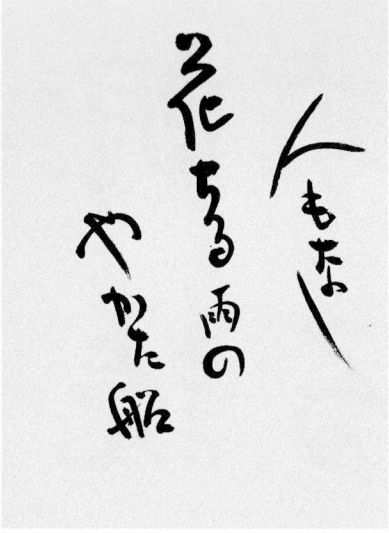 人もなし
花ちる雨の
やかた船